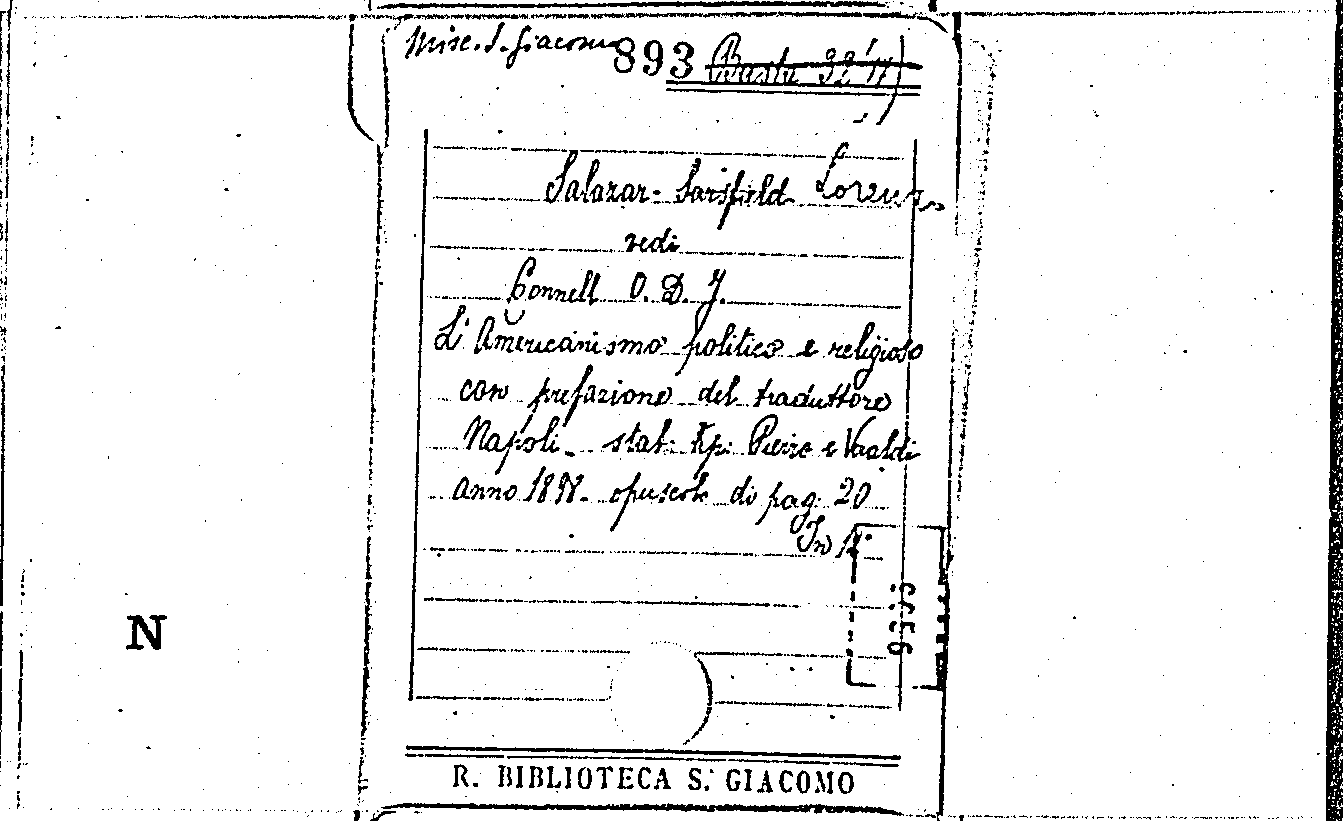 Misc. S. Giacomo 893 Busta 32
Salazar-Sarsfield Lorenzo
vedi
Connell O. D. J.
L'Americanismo politico e religioso
con prefazione del traduttore
Napoli - stab. tip. Pierro e Veraldi
anno 189 - opuscolo di pag. 20
In
N
R. BIBLIOTECA S. GIACOMO